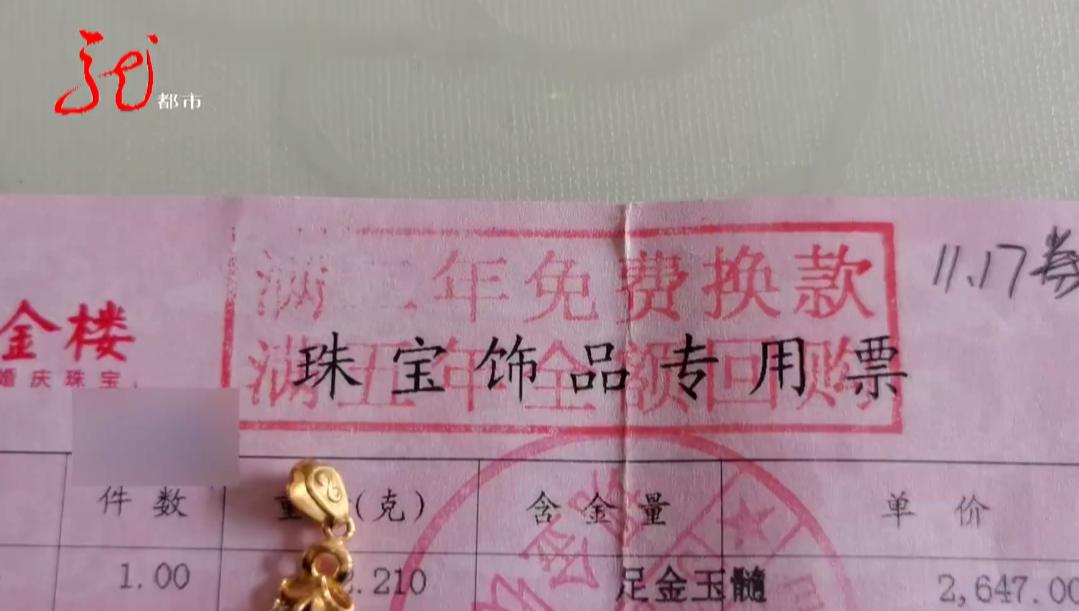 都市
11.17
满二年免费换款
金楼
珠宝饰品专用票
满五年全额回购
婚庆珠宝
件数 重 (克) 含金量 单价
1.00 2.210 足金玉髓 2,647.00